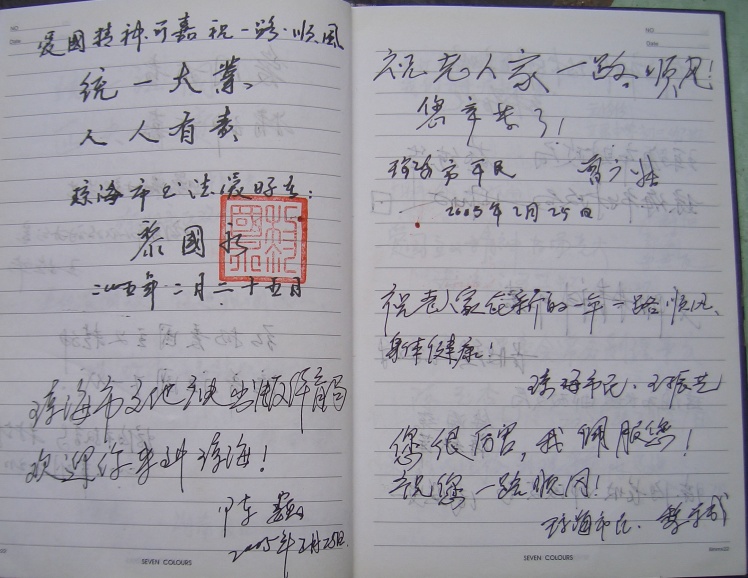 NO
Date
爱國精神可嘉祝一路顺風
统一大業
人人有责
琼海市书法爱好者:
黎國
二〇〇五年二月二十五日
琼海市文化广电出版体育局
欢迎你来到琼海!
陈
2005年2月25日
SEVEN COLOURS
NO
Date
祝老人家一路顺风!
您辛苦了!
琼海市市民
2005年2月25日
祝老人家在新的一年一路顺风、
身体健康!
琼海市民:王振
您很厉害,我佩服您!
祝您一路顺风!
琼海市民:
SEVEN COLOURS